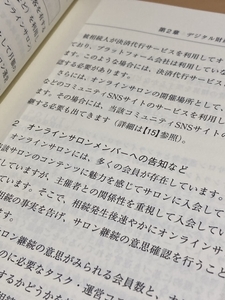 第2章 デジタル財
被相続人が決済代行サービスを利用して
おり、プラットフォーム会社は利用していな
す。このような場合には、決済代行サービス
さらには、オンラインサロンの開催場所として、
コミュニティSNSサイトのサービスを利用
す。その場合には、当該コミュニティSNSサイ
する必要も出てきます(詳細は【15】参照)。
2 オンラインサロンメンバーへの告知など
オンラインサロンには、多くの会員が存在しています。
該サロンのコンテンツに魅力を感じてサロンに入会して
ますが、主催者との関係性を重視して入会している
す。そこで、相続発生後速やかにオンラインサ
相続の事実を告げ、サロン継続の意思確認を行うこと
サロン継続の意思がみられる会員数と、
のに必要なタスク・運営コス
るかどうかを